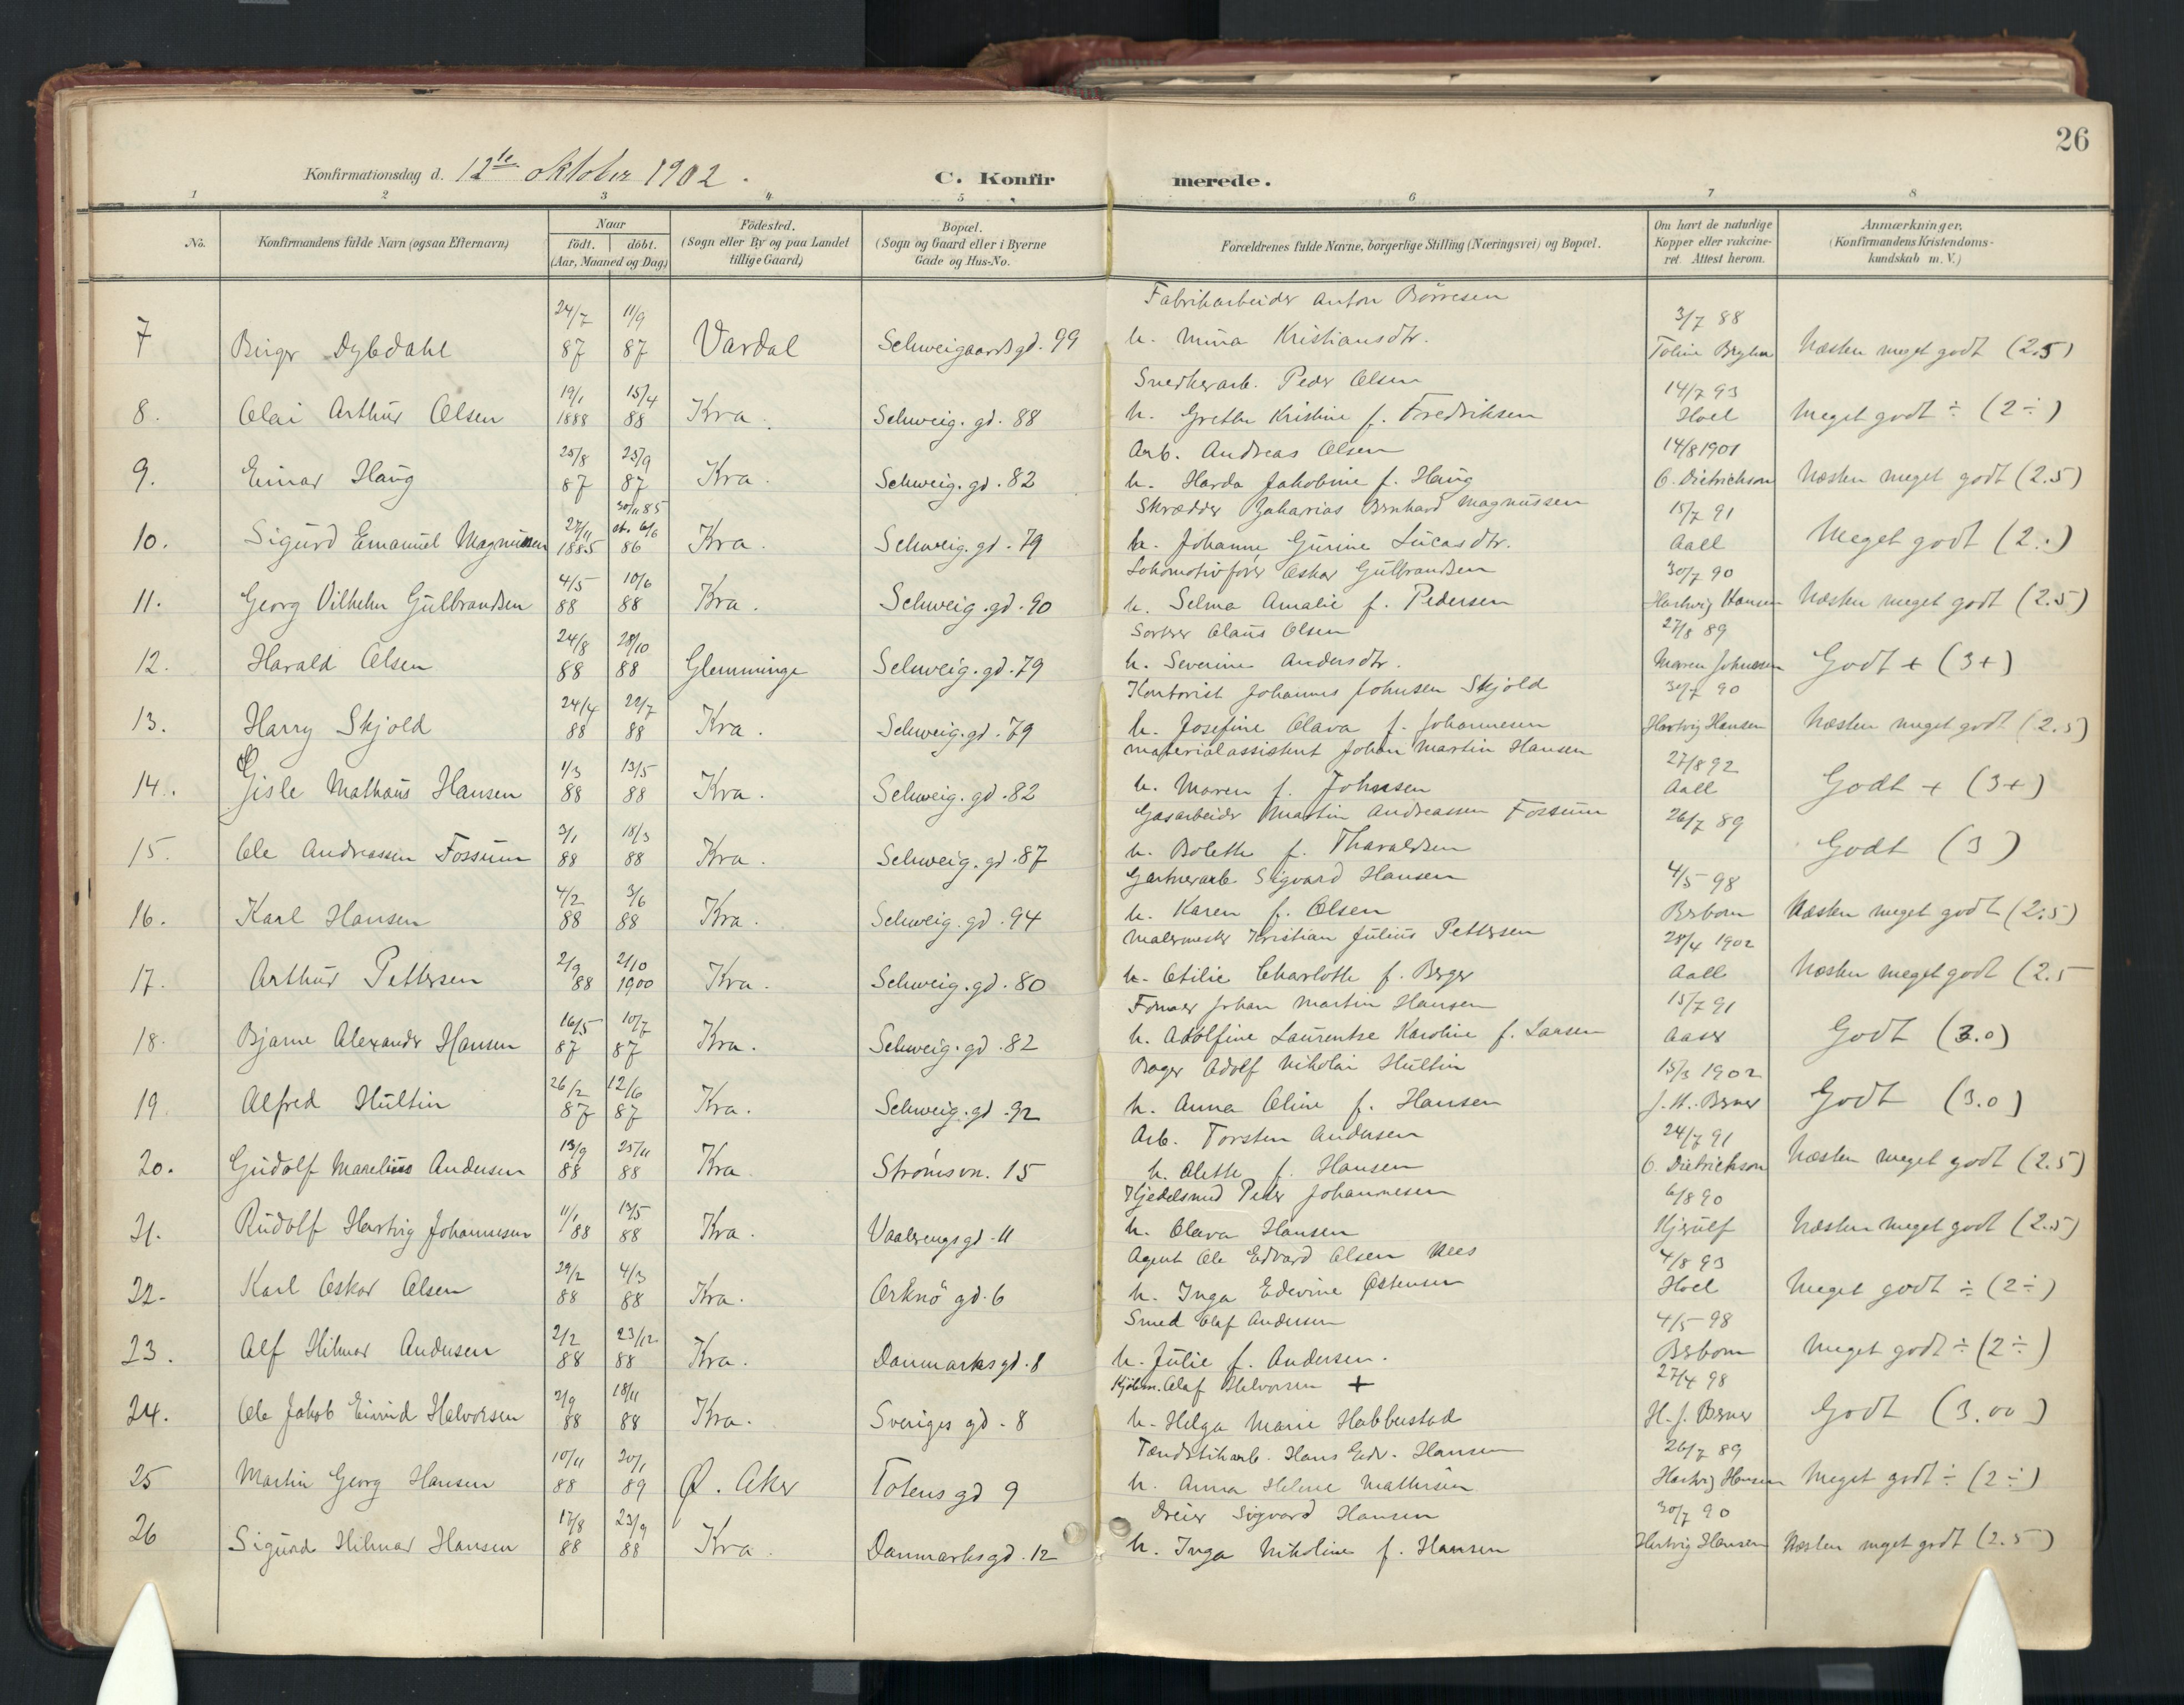 26
Konfirmationsdag d. 12te oktober 1902.
C. Konfirmerede.
1 2 3 4 5 6 7 8
No.
Konfirmandens fulde Navn (ogsaa Efternavn)
Naar
födt. | döbt.
(Aar, Maaned og Dag.)
Födested.
(Sogn eller By og paa Landet
tillige Gaard)
Bopæl.
(Sogn og Gaard eller i Byerne
Gade og Hus-No.
Forældrenes fulde Navne, borgerlige Stilling (Næringsvei) og Bopæl.
Om havt de naturlige
Kopper eller vakcine-
ret. Attest herom.
Anmærkninger,
(Konfirmandens Kristendoms-
kundskab m. V.)
24/7 11/9 Fabrikarbeider Anton Börresen 3/7 88
7 Birger Dybdahl 87 87 Vardal Schweigaardsgd. 99 h. Mina Kristiansdtr. Næsten meget godt (2.5)
19/1 15/4 Snedkerarb. Peder Olsen 14/7 93
8. Olai Arthur Olsen 1888 88 Kra. Schweig. gd. 88 h. Grethe Kristine f. Fredriksen Hoel Meget godt ÷ (2÷)
25/8 25/9 Arb. Andreas Olsen 14/8 1901
9. Einar Haug 87 87 Kra. Schweig. gd. 82 h. Harda Jakobine f. Haug O. Dietrichson Næsten meget godt (2.5)
27/11 30/11 85 st. 6/6 Skrædder Zakarias Bernhard Magnussen 15/7 91
10. Sigurd Emanuel Magnussen 1885 86 Kra. Schweig. gd. 79 h. Johanne Gurine Lucasdtr. Aall Meget godt (2.)
4/5 10/6 Lokomotivförer Oskar Gulbrandsen 30/7 90
11. Georg Vilhelm Gulbrandsen 88 88 Kra. Schweig. gd. 90 h. Selma Amalie f. Pedersen Hartwig Hansen Næsten meget godt (2.5)
24/8 28/10 Sorterer Claus Olsen 27/8 89
12. Harald Olsen 88 88 Glemminge Schweig. gd. 79 h. Severine Andersdtr. Maren Johnsen Godt + (3+)
24/4 22/7 Kontorist Johannes Johnsen Skjold 30/7 90
13. Harry Skjold 88 88 Kra. Schweig. gd. 79 h. Josefine Olava f. Johannesen Hartvig Hansen Næsten meget godt (2.5)
1/3 13/5 Materialassistent Johan Martin Hansen 27/8 92
14. Gisle Mathæus Hansen 88 88 Kra. Schweig. gd. 82 h. Maren f. Johnsen Aall Godt + (3+)
3/1 18/3 Gasarbeider Martin Andreassen Fossum 26/7 89
15. Ole Andreassen Fossum 88 88 Kra. Schweig. gd. 87 h. Bolette f. Tharaldsen Godt (3)
4/2 3/6 Gartnerarb. Sigvard Hansen 4/5 98
16. Karl Hansen 88 88 Kra. Schweig. gd. 94 h. Karen f. Olsen Næsten meget godt (2.5)
2/9 21/10 Malermester Kristian Julius Pettersen 28/4 1902
17. Arthur Pettersen 88 1900 Kra. Schweig. gd. 80 h. Otilie Charlotte f. Berger Aall Næsten meget godt (2.5
16/5 10/7 Former Johan Martin Hansen 15/7 91
18. Bjarne Alexander Hansen 87 87 Kra. Schweig. gd. 82 h. Adolfine Laurentze Karoline f. Larsen Aaser Godt (3.0)
26/2 12/6 Bager Adolf Nikolai Hultin 15/3 1902
19. Alfred Hultin 87 87 Kra. Schweig. gd. 92 h. Anna Oline f. Hansen Godt (3.0)
13/9 25/11 Arb. Torsten Andersen 24/7 91
20. Gudolf Marelius Andersen 88 88 Kra. Strömsvn. 15 h. Alette f. Hansen O. Dietrichson Næsten meget godt (2.5)
11/1 13/5 Kjedelsmed Peder Johannesen 6/8 90
21. Rudolf Hartvig Johannesen 88 88 Kra. Vaalerengsgd. 11 h. Olava Hansen Kjerulf Næsten meget godt (2.5)
29/2 4/3 Agent Ole Edvard Olsen Nees 4/8 93
22. Karl Oskar Olsen 88 88 Kra. Orknö gd. 6 h. Inga Edevine Östensen Hoel Meget godt ÷ (2÷)
2/2 23/12 Smed Olaf Andersen 4/5 98
23. Alf Hilmar Andersen 88 88 Kra. Danmarksgd. 8 h. Julie f. Andersen. Meget godt ÷ (2÷)
2/9 18/11 Kjöbm. Olaf Halvorsen + 27/4 98
24. Ole Jakob Eivind Halvorsen 88 88 Kra. Sveriges gd. 8 h. Helga Marie Habbustad Godt (3.00)
10/11 20/1 Tændstikarb. Hans Edv. Hansen 26/7 89
25 Martin Georg Hansen 88 89 Ø. Aker Totens gd 9 h. Anna Heline Mathisen Hartvig Hansen Meget godt ÷ (2÷)
17/8 23/9 Dreier Sigvard Hansen 30/7 90
26 Sigurd Hilmar Hansen 88 88 Kra. Danmarksgd. 12 h. Inga Nikoline f. Hansen Hartvig Hansen Næsten meget godt (2.5)